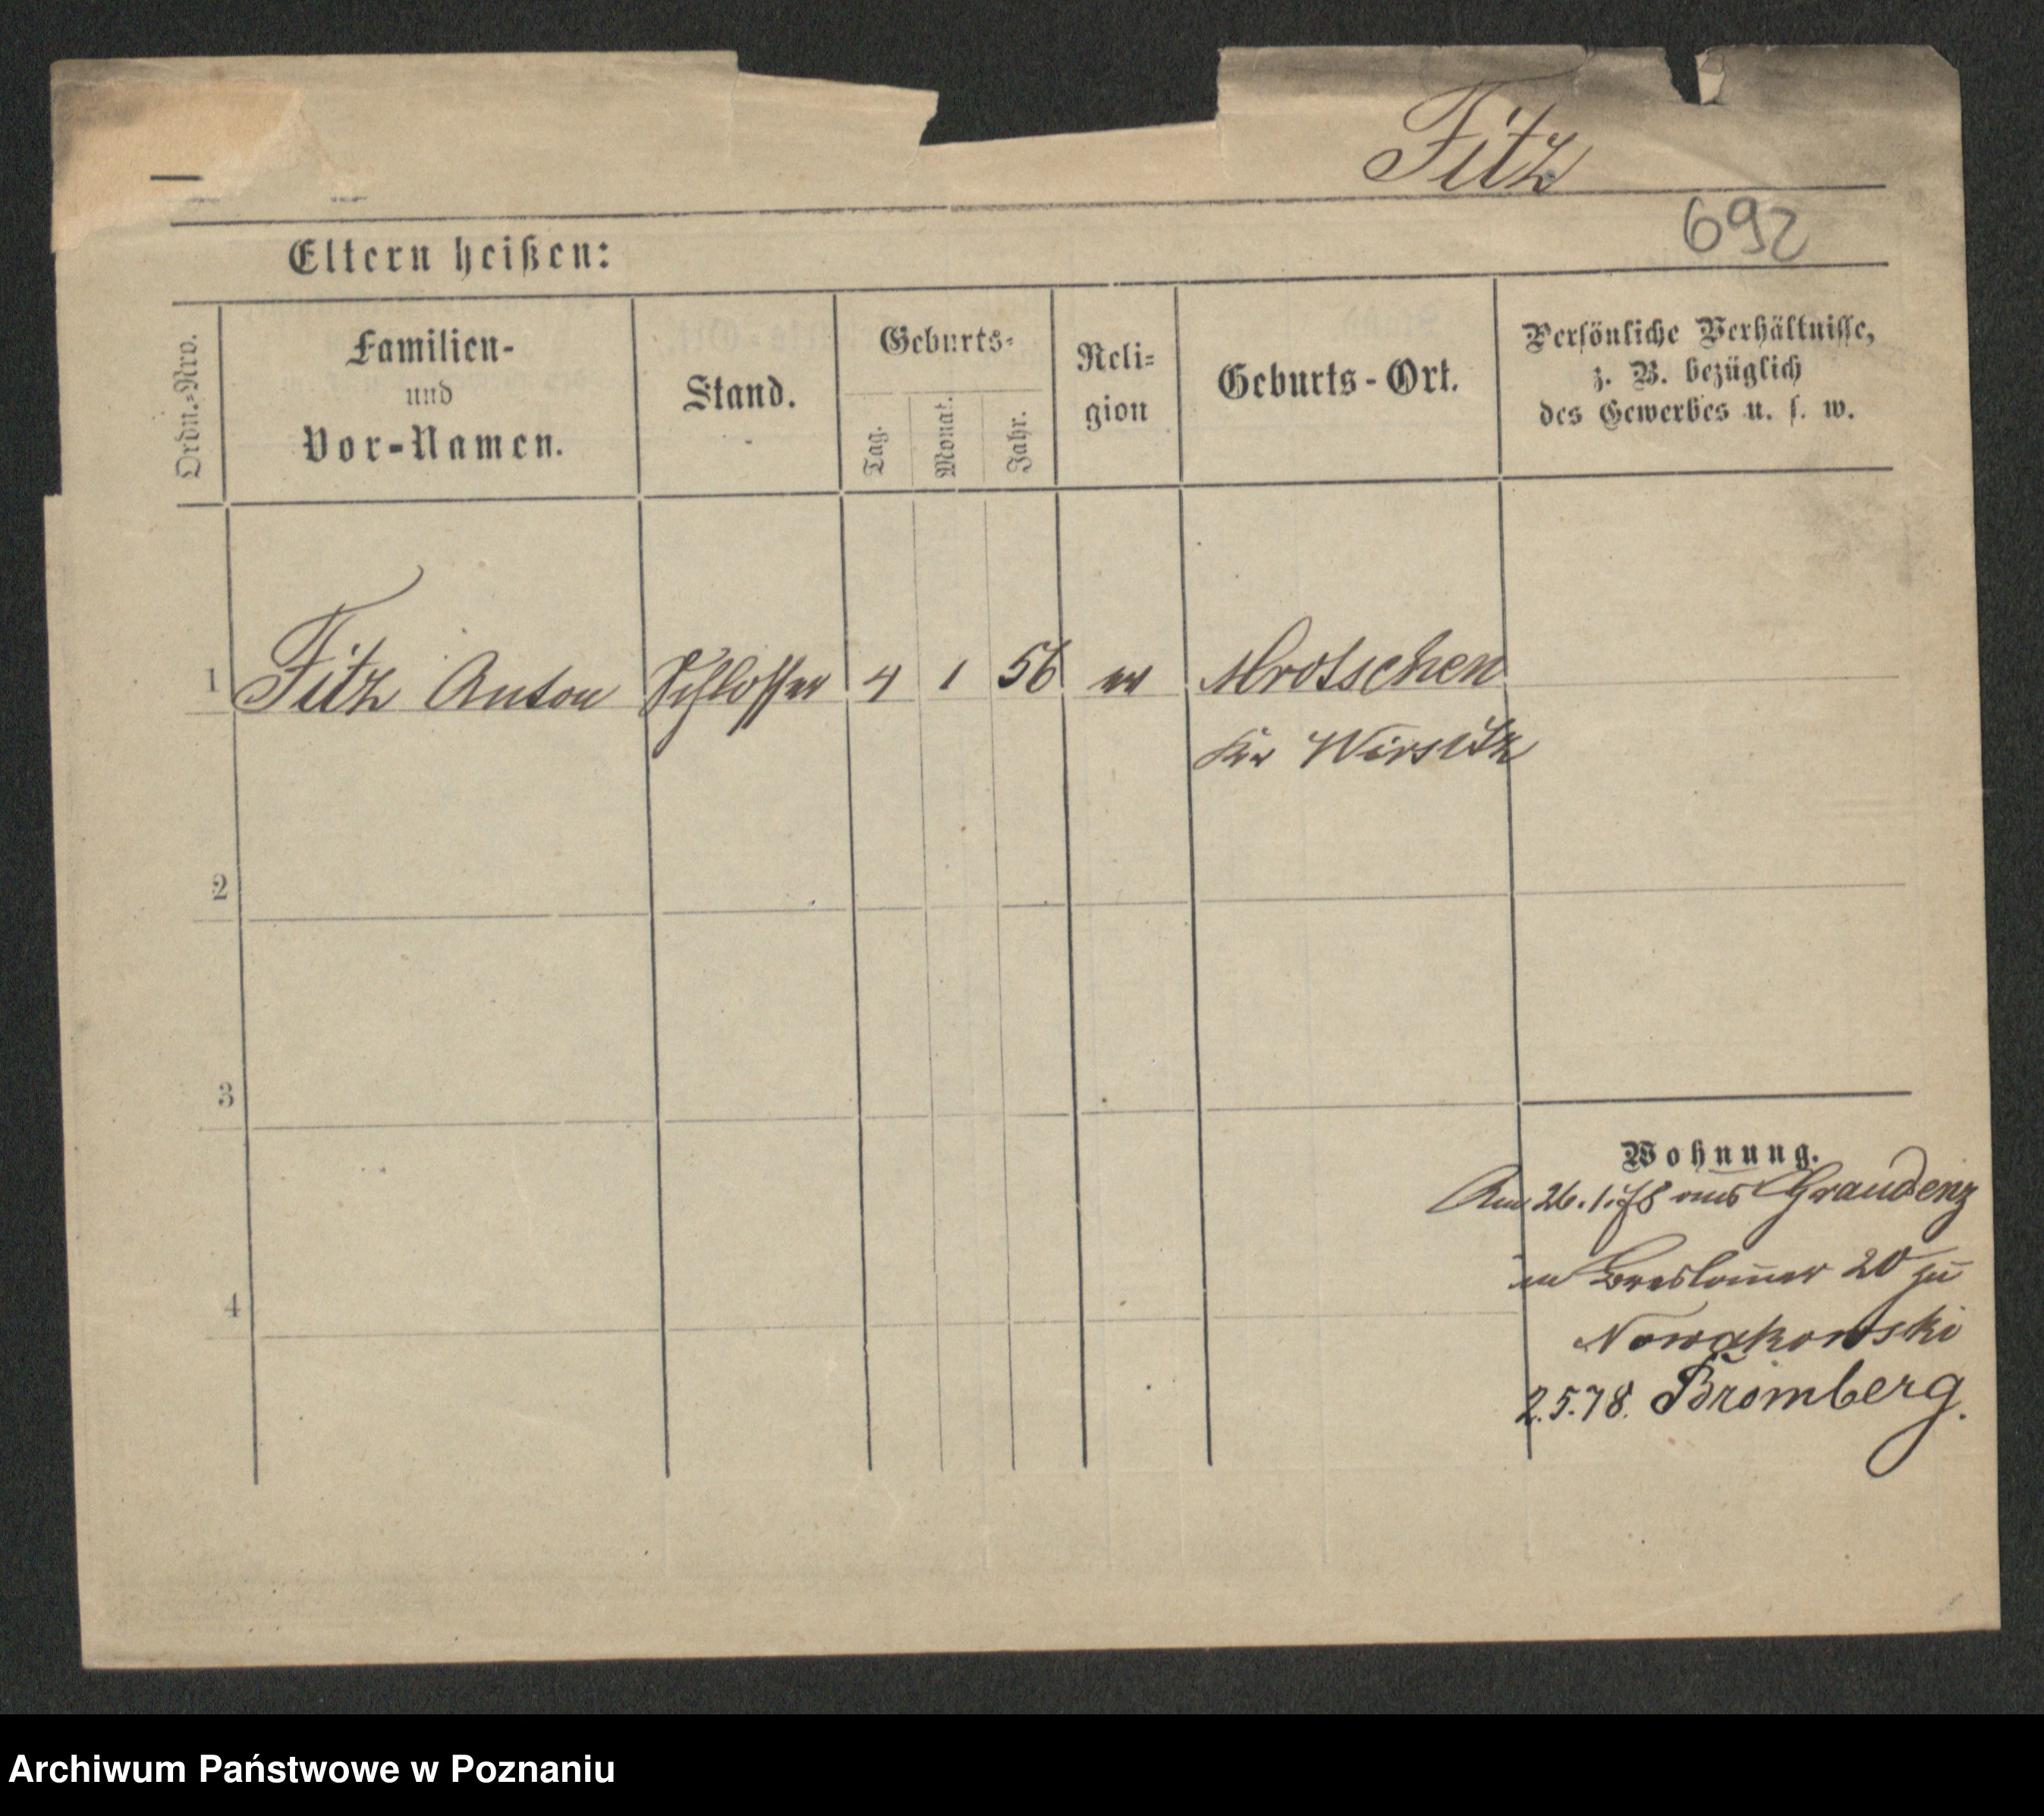 Fitz
692
Eltern heißen:
Ordn.-Nro.
Familien-
und
Vor-Namen.
Stand.
Geburts-
Tag.
Monat.
Jahr.
Reli-
gion
Geburts-Ort.
Persönliche Verhältnisse,
z. B. bezüglich
des Gewerbes u. s. w.
1 Fitz Anton Schlosser 4 1 56 Mrotschen
Kr Wirsitz
2
3
4
Wohnung.
Am 26.1.78 aus Graudenz
Breslauer 20 zu
Nowakowski
2.5.78. Bromberg.
Archiwum Państwowe w Poznaniu